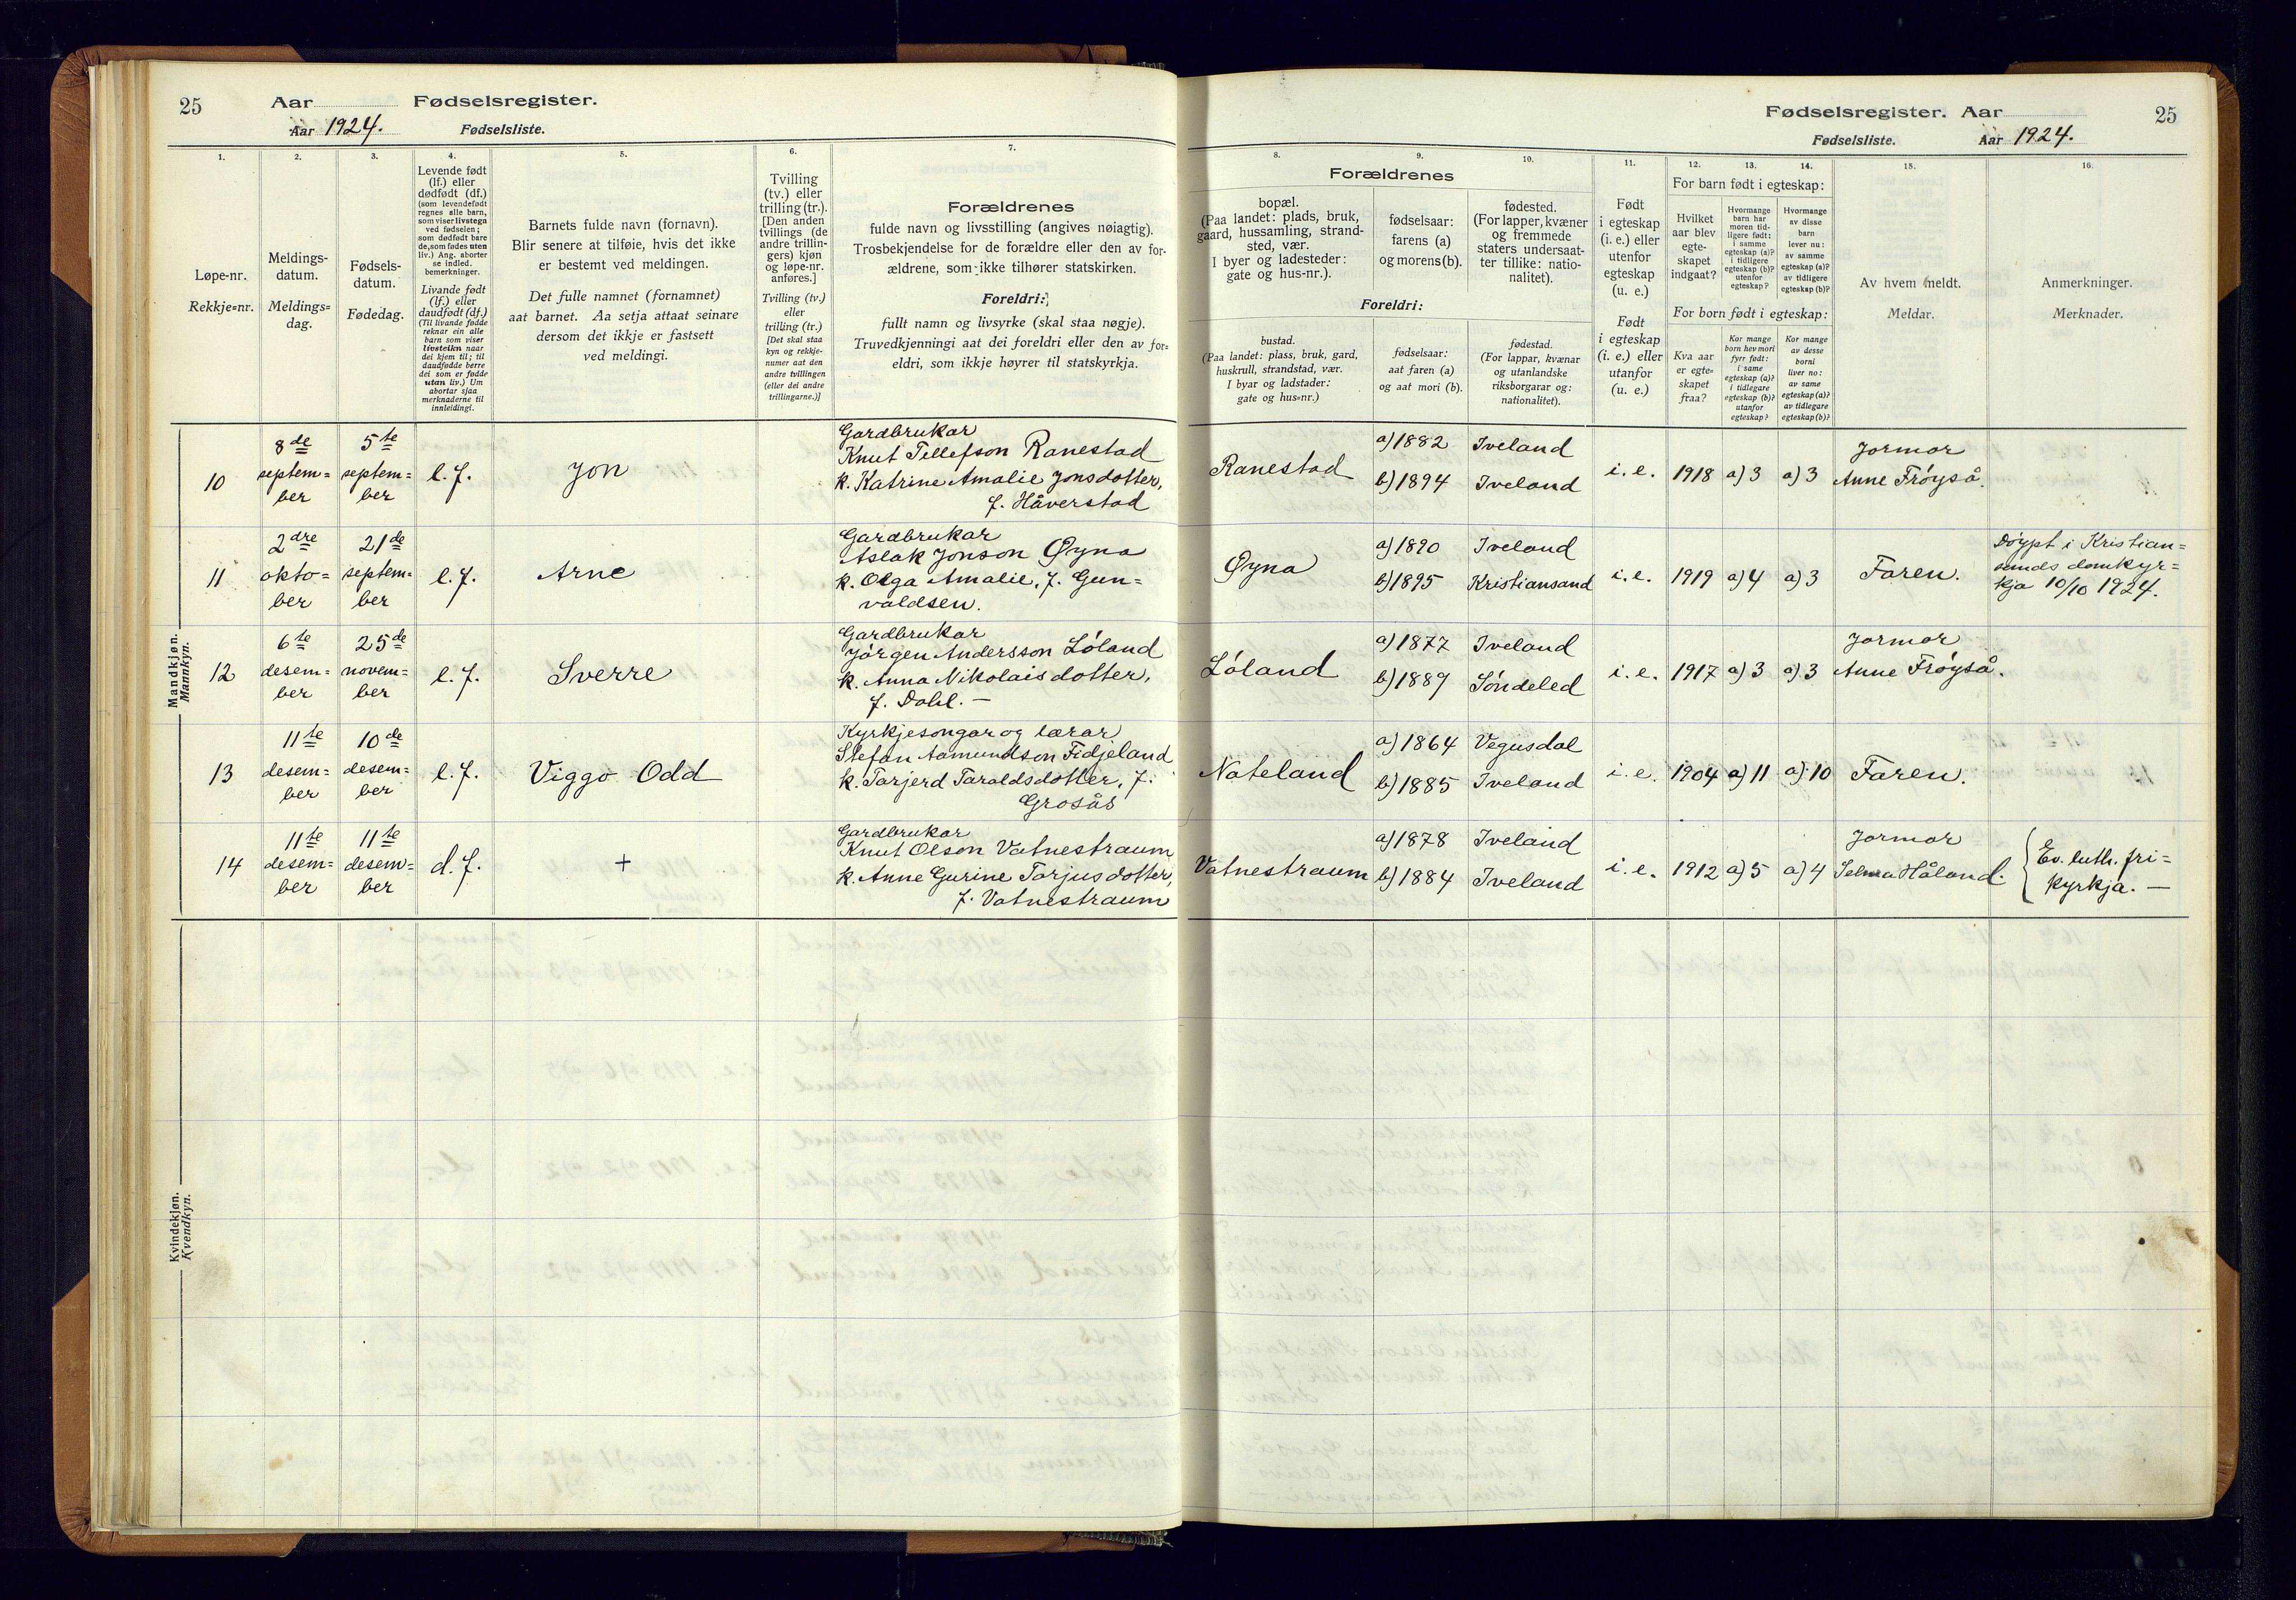 25 Aar Fødselsregister.
Aar 1924. Fødselsliste.
Fødselsregister. Aar 25
Fødselsliste. Aar 1924.
1.
Løpe-nr.
Rekkje=nr.
2.
Meldings-
datum.
Meldings=
dag.
3.
Fødsels-
datum.
Fødedag.
4.
Levende født
(lf.) eller
dødfødt (df.)
(som levendefødt
regnes alle barn,
som viser livstegn
ved fødselen;
som dødfødt bare
de, som fødes uten
liv.) Ang. aborter
se indled.
bemerkninger.
Livande født
(lf.) eller
daudfødt (df.)
(Til livande fødde
reknar ein alle
barn som viser
livsteikn naar
dei kjem til; til
daudfødde berre
dei som er fødde
utan liv.) Um
abortar sjaa
merknaderne til
innleidingi.
5.
Barnets fulde navn (fornavn).
Blir senere at tilføie, hvis det ikke
er bestemt ved meldingen.
Det fulle namnet (fornamnet)
aat barnet. Aa setja attaat seinare
dersom det ikkje er fastsett
ved meldingi.
6.
Tvilling
(tv.) eller
trilling (tr.).
[Den anden
tvillings (de
andre trillin-
gers) kjøn
og løpe-nr.
anføres.]
Tvilling (tv.)
eller
trilling (tr.)
[Det skal staa
kyn og rekkje-
numer aat den
andre tvillingen
(eller dei andre
trillingarne.)]
7.
Forældrenes
fulde navn og livsstilling (angives nøiagtig).
Trosbekjendelse for de forældre eller den av for-
ældrene, som ikke tilhører statskirken.
Foreldri:
fullt namn og livsyrke (skal staa nøgje).
Truvedkjenningi aat dei foreldri eller den av for=
eldri, som ikkje høyrer til statskyrkja.
Forældrenes
8.
bopæl.
(Paa landet: plads, bruk,
gaard, hussamling, strand-
sted, vær.
I byer og ladesteder:
gate og hus-nr.).
9.
fødselsaar:
farens (a)
og morens (b).
10.
fødested.
(For lapper, kvæner
og fremmede
staters undersaat-
ter tillike: natio-
nalitet).
Foreldri:
bustad.
(Paa landet: plass, bruk, gard,
huskrull, strandstad, vær.
I byar og ladstader:
gate og hus=nr.)
fødselsaar:
aat faren (a)
og aat mori (b).
fødestad.
(For lappar, kvænar
og utanlandske
riksborgarar og:
nationalitet).
11.
Født
i egteskap
(i. e.) eller
utenfor
egteskap
(u. e.)
Født
i egteskap
(i. e.) eller
utanfor
(u. e.)
12. 13. 14.
For barn født i egteskap:
Hvilket
aar blev
egte-
skapet
indgaat?
Hvormange
barn har
moren tid-
ligere født:
i samme
egteskap (a)?
i tidligere
egteskap (b)?
utenfor
egteskap?
Hvormange
av disse
barn
lever nu:
av samme
egteskap (a)?
av tidligere
egteskap (b)?
For born født i egteskap:
Kva aar
er egte=
skapet
fraa?
Kor mange
born hev mori
fyrr født:
i same
egteskap (a)?
i tidlegare
egteskap (b)?
utanfor
egteskap?
Kor mange
av desse
borni
liver no:
av same
egteskap (a)?
av tidlegare
egteskap (b)?
15.
Av hvem meldt.
Meldar.
16.
Anmerkninger.
Merknader.
Mandkjøn.
Mannkyn.
10
8de
septem=
ber
5te
septem=
ber
l. f.
Jon
Gardbrukar
Knut Tellefson Ranestad
k. Katrine Amalie Jonsdotter,
f. Håverstad
Ranestad
a) 1882 Iveland
b) 1894 Iveland
i. e. 1918 a) 3 a) 3
Jormor
Anne Frøyså.
11
2dre
okto=
ber
21de
septem=
ber
l. f.
Arne
Gardbrukar
Aslak Jonson Øyna
k. Olga Amalie, f. Gun=
valdsen.
Øyna
a) 1890 Iveland
b) 1895 Kristiansand
i. e. 1919 a) 4 a) 3
Faren.
Døypt i Kristian=
sands domkyr=
kja 10/10 1924.
12
6te
desem=
ber
25de
novem=
ber
l. f.
Sverre
Gardbrukar
Jørgen Andersson Løland
k. Anna Nikolaisdotter,
f. Dahl. —
Løland
a) 1877 Iveland
b) 1889 Søndeled
i. e. 1917 a) 3 a) 3
Jormor
Anne Frøyså.
13
11te
desem=
ber
10de
desem=
ber
l. f.
Viggo Odd
Kyrkjesongar og lærar
Stefan Aamundson Fidjeland
k. Tarjerd Taraldsdotter, f.
Grosås
Nateland
a) 1864 Vegusdal
b) 1885 Iveland
i. e. 1904 a) 11 a) 10
Faren.
14
11te
desem=
ber
11te
desem=
ber
d. f.
+
Gardbrukar
Knut Olson Vatnestraum
k. Anne Gurine Tarjusdotter,
f. Vatnestraum
Vatnestraum
a) 1878 Iveland
b) 1884 Iveland
i. e. 1912 a) 5 a) 4
Jormor
Selma Håland.
Ev. luth. fri=
kyrkja. —
Kvindekjøn.
Kvendkyn.